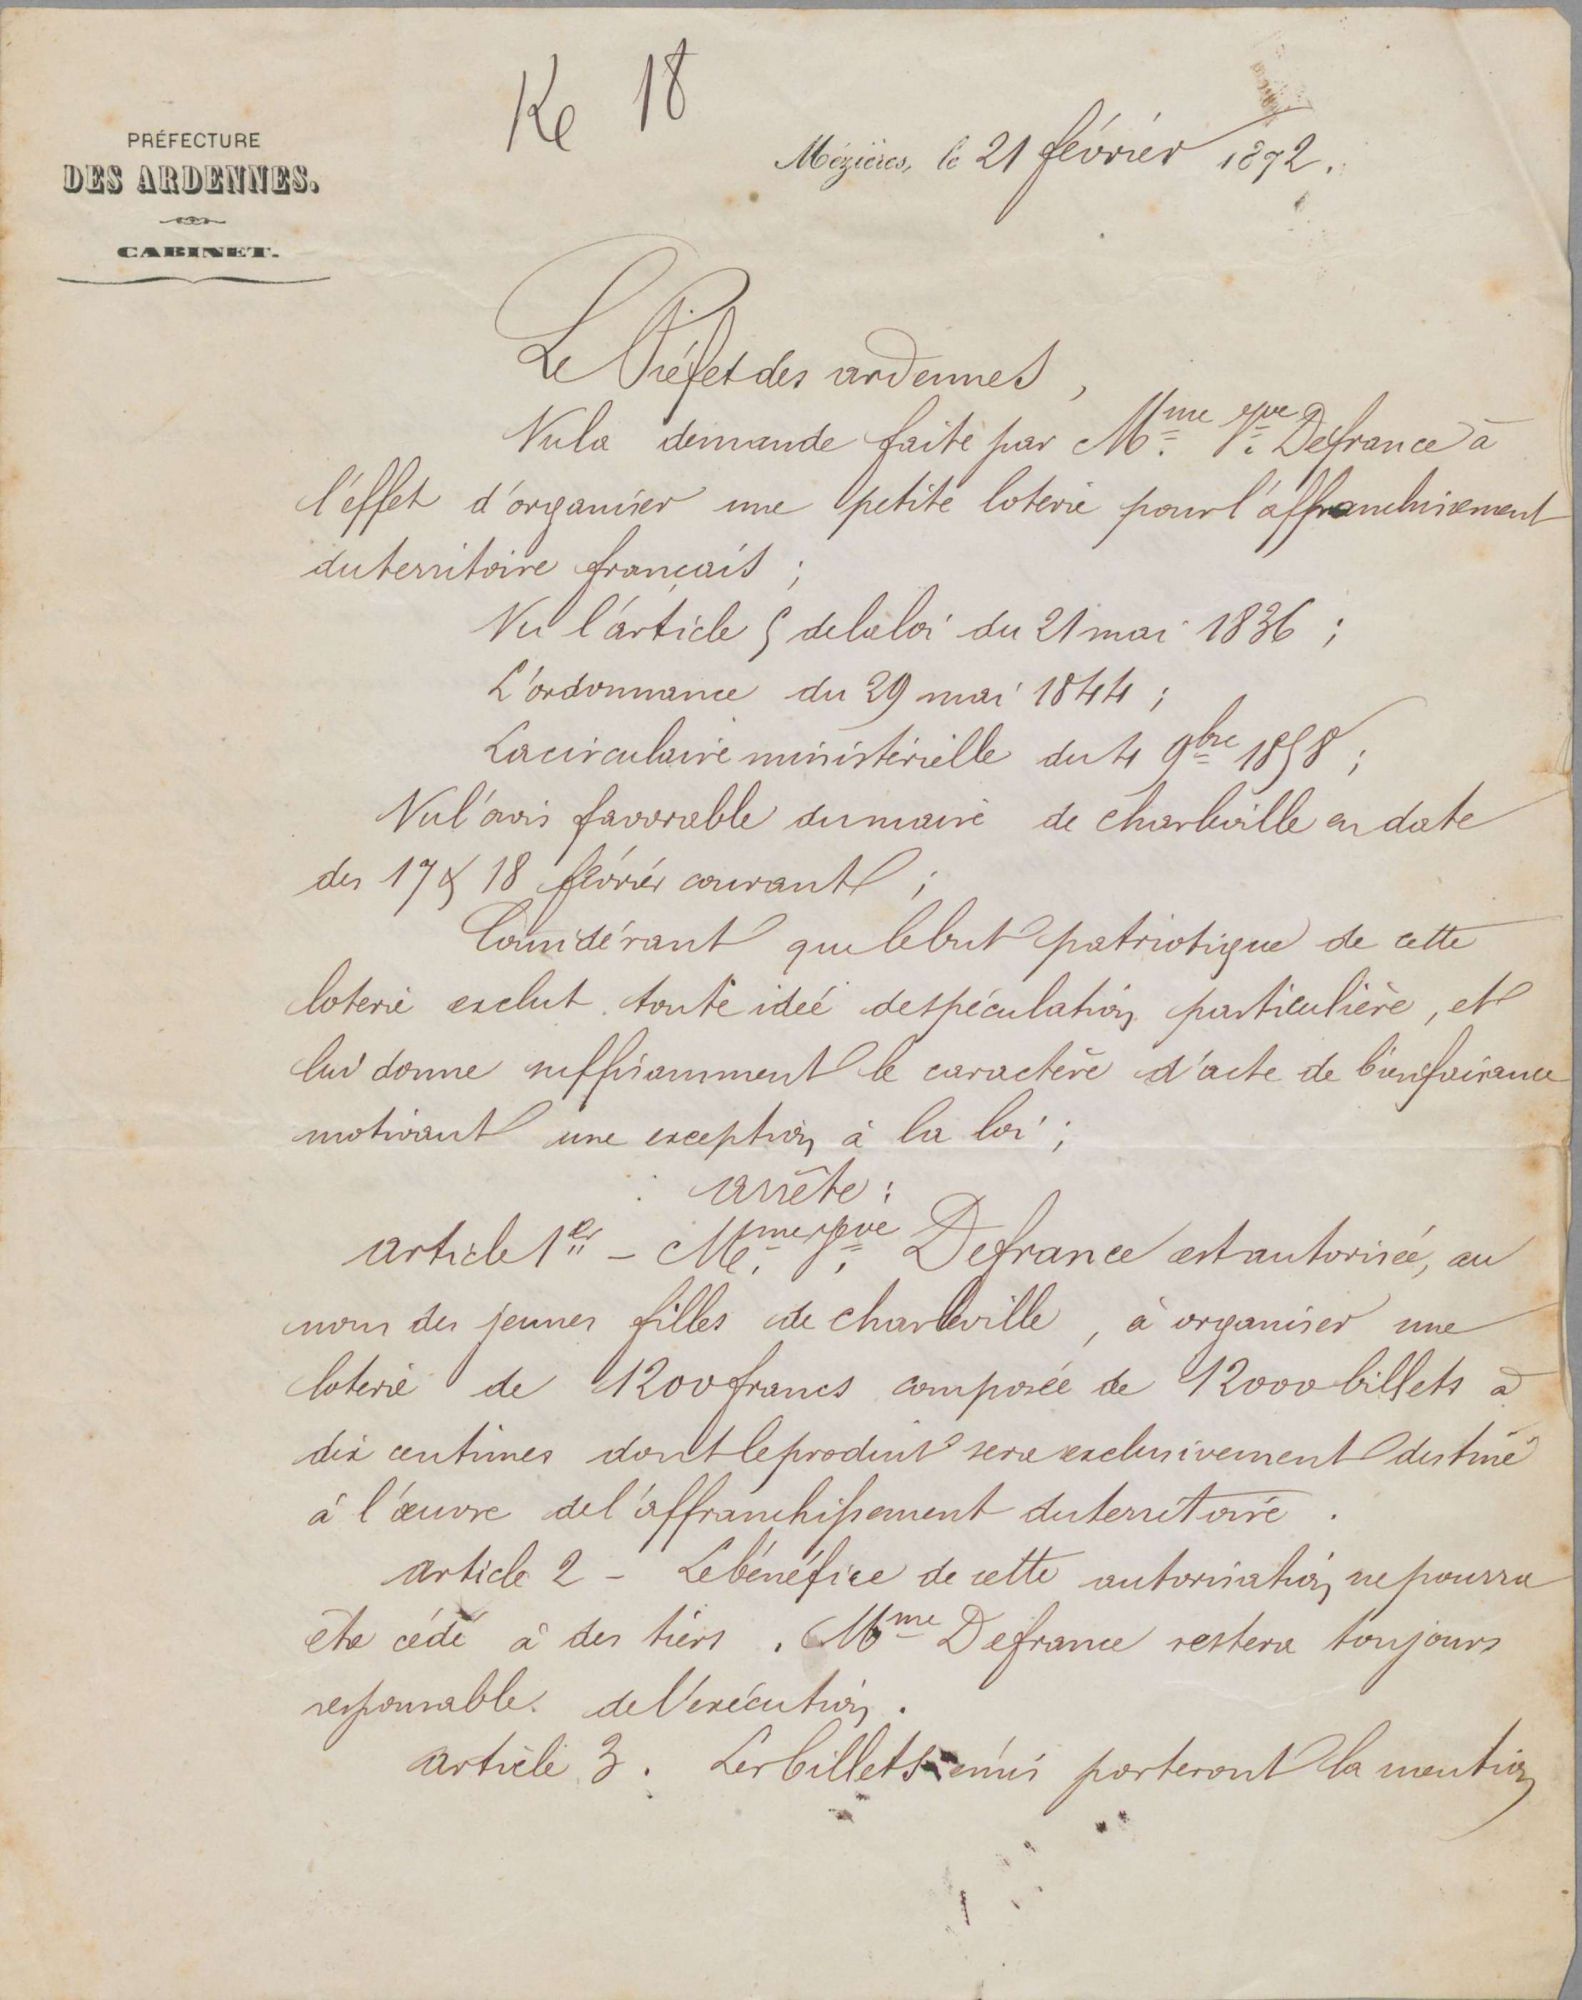 Ke 18
PRÉFECTURE
DES ARDENNES.
CABINET.
Mézières, le 21 février 1872.
Le Préfet des ardennes,
Vu la demande faite par Mme Vve Defrance à
l'effet d'organiser une petite loterie pour l'affranchissement
du territoire français ;
Vu l'article 5 de la loi du 21 mai 1836 ;
L'ordonnance du 29 mai 1844 ;
La circulaire ministérielle du 4 9bre 1858 ;
Vu l'avis favorable du maire de charleville en date
des 17 & 18 février courant ;
Considérant que le but patriotique de cette
loterie exclut toute idée de spéculation particulière, et
lui donne suffisamment le caractère d'acte de bienfaisance
motivant une exception à la loi ;
arrête :
article 1er – Mme Vve Defrance est autorisée, au
nom des jeunes filles de charleville, à organiser une
loterie de 1200 francs composée de 12000 billets à
dix centimes dont le produit sera exclusivement destiné
à l'œuvre de l'affranchissement du territoire.
article 2 – Le bénéfice de cette autorisation ne pourra
être cédé à des tiers. Mme Defrance restera toujours
responsable de l'exécution.
article 3. Les billets émis porteront la mention